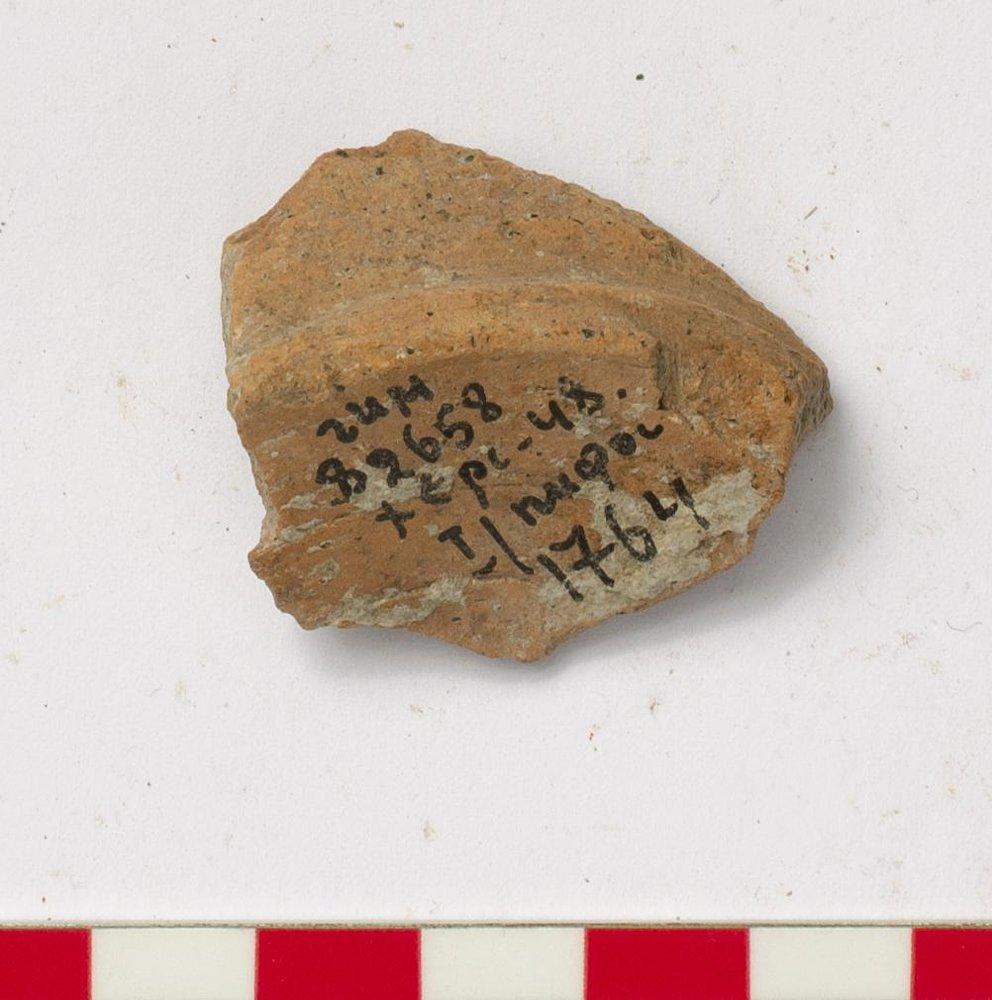 гим
82658
херс-48.
I/ пифос
1764